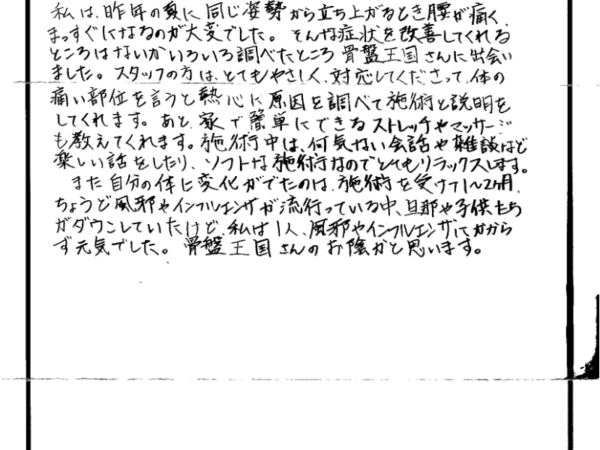 私は、昨年の夏に同じ姿勢から立ち上がるとき腰が痛く、
まっすぐになるのが大変でした。そんな症状を改善してくれる
ところはないかいろいろ調べたところ骨盤王国さんに出会い
ました。スタッフの方は、とてもやさしく、対応してくださって、体の
痛い部位を言うと熱心に原因を調べて施術と説明を
してくれます。あと、家で簡単にできるストレッチやマッサージ
も教えてくれます。施術中は、何気ない会話や雑談ほど
楽しい話をしたり、ソフトな施術なのでとてもリラックスします。
また自分の体に変化がでたのは、施術を受けて1〜2ヶ月、
ちょうど風邪やインフルエンザが流行っている中、旦那や子供たち
がダウンしていたけど、私は1人、風邪やインフルエンザにかから
ず元気でした。骨盤王国さんのお陰かと思います。